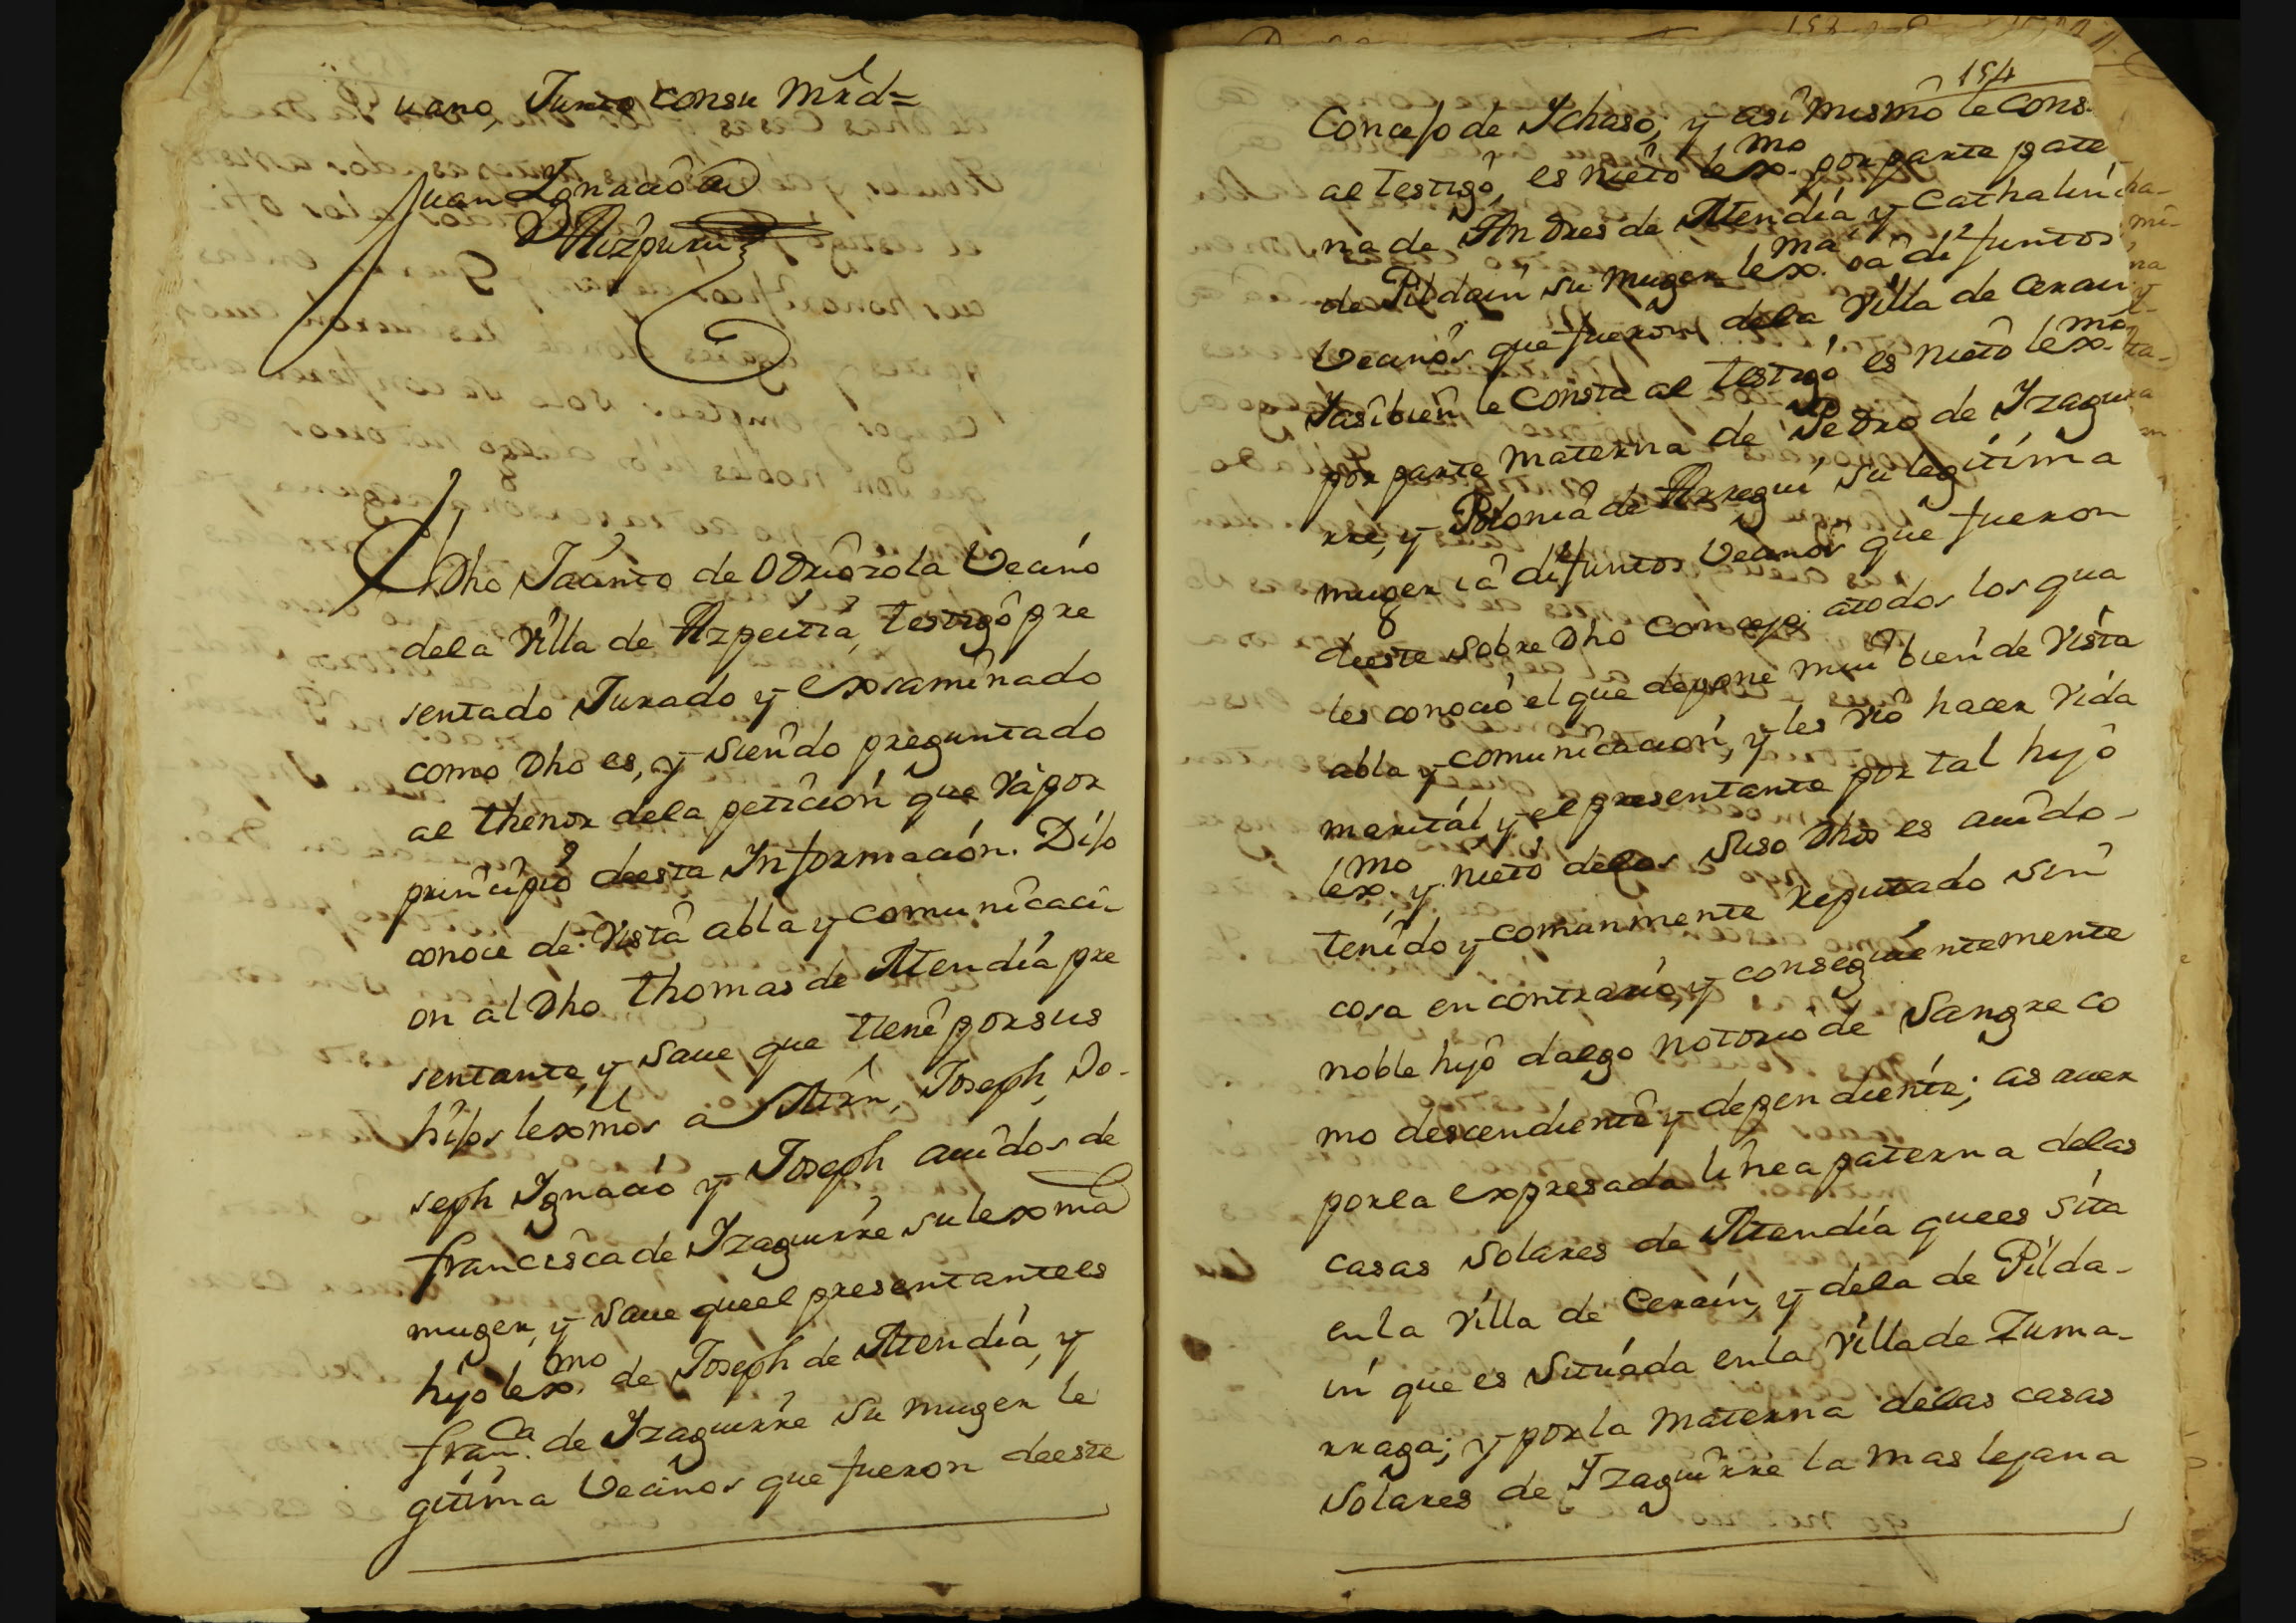 uano, Junto consu Mrd=
Juan Ygnacio de
Aizpuru
El Dho Jacinto de Odriozola Vecino
dela Villa de Azpeitia, testigo pre
sentado Jurado y exsaminado
como Dho es, y siendo preguntado
al thenor dela peticion que va por
principio deesta Informacion. Dijo
conoce de vista abla y comunicaci-
on al Dho thomas de Atendia pre
sentante, y saue que tiene porsus
hijos lexmos a Mrn, Joseph, Jo-
seph Ygnacio y Joseph auidos de
francisca de Yzaguirre su lexma
muger, y saue queel presentantees
hijo lexmo de Joseph de Atendia, y
franca de Yzaguirre su muger le
gitima Vecinos que fueron deeste
154
Concejo de Ychaso; y asi mismo le cons
al testigo, es nieto lexmo por parte pate
na de Andres de Atendia y Cathalin
de Pildain su muger lexma ia difuntos
Vecinos que fueron dela Villa de Cerain
Yasibien le Consta al testigo es nieto lexmo
por parte materna de Pedro de Yzagui
rre, y Polonia de Arregui su legitima
muger ia difuntos Vecinos que fueron
deeste sobre Dho Concejo; atodos los qua
les conocio el que depone mui bien de vista
abla y comunicacion, y les vio hacer vida
marital y el presentante por tal hijo
lexmo y nieto delos suso Dhos es auido-
tenido y comunmente reputado sin
cosa en contrario, y conseguientemente
noble hijo dalgo notorio de sangre co
mo descendiente y dependiente; as auer
porla expresada linea paterna delas
casas solares de Atendia quees sita
enla Villa de Cerain, y dela de Pilda-
in que es situada enla Villa de Zuma-
rraga; y porla materna delas casas
solares de Yzaguirre la mas lejana